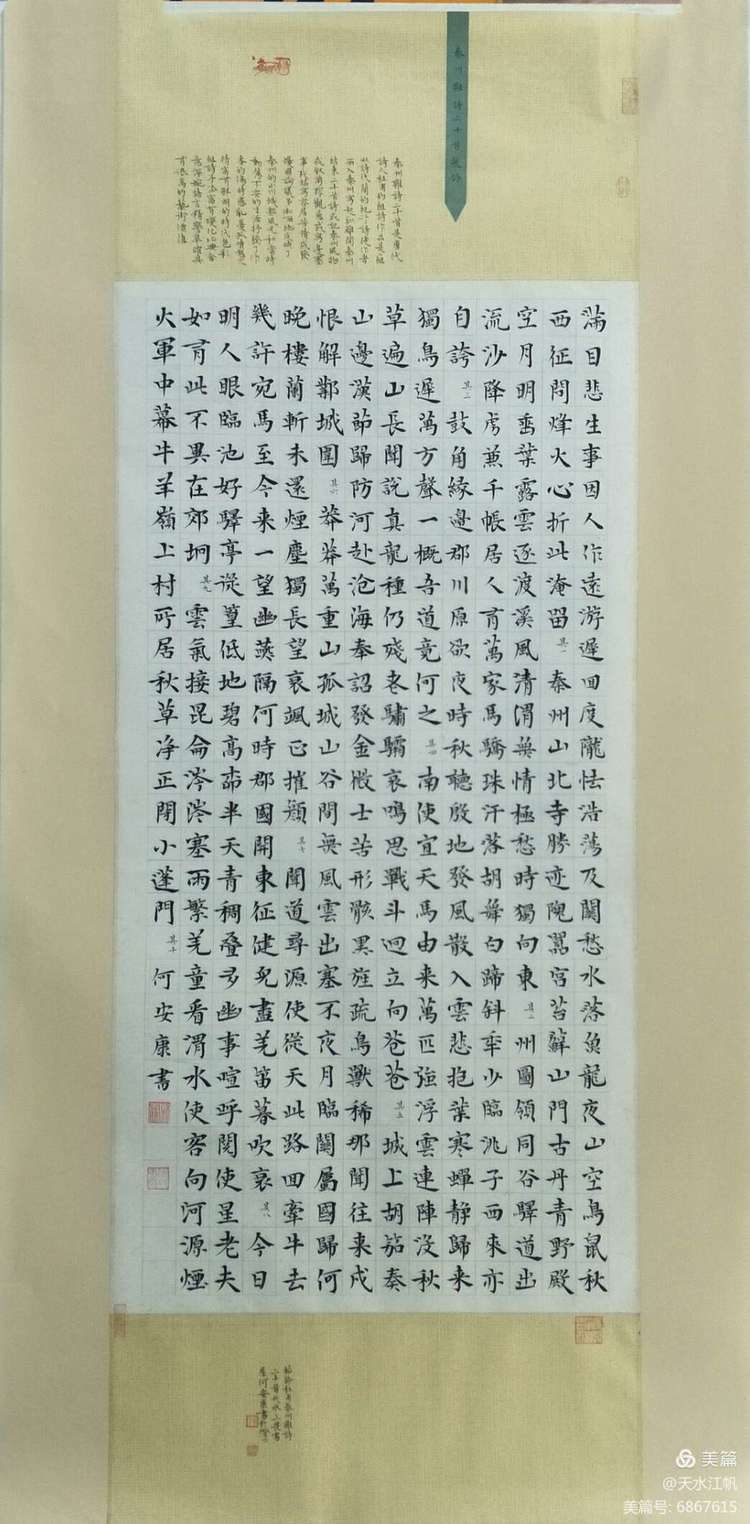 秦州雜詩二十首
秦州雜詩二十首是唐代
詩人杜甫的組詩作品
滿目悲生事因人作遠游遲回度隴怯浩蕩及關愁水落魚龍夜山空鳥鼠秋
西征問烽火心折此淹留其一秦州山北寺勝迹隗囂宮苔蘚山門古丹青野殿
空月明垂葉露雲逐渡溪風清渭無情極愁時獨向東其二州圖領同谷驛道出
流沙降虜兼千帳居人有萬家馬驕珠汗落胡舞白蹄斜年少臨洮子西來亦
自誇其三鼓角緣邊郡川原欲夜時秋聽殷地發風散入雲悲抱葉寒蟬静歸来
獨鳥遲萬方聲一概吾道竟何之其四南使宜天馬由来萬匹強浮雲連陣没秋
草遍山長聞說真龍種仍殘老驌驦哀鳴思戰斗迥立向蒼蒼其五城上胡笳奏
山邊漢節歸防河赴滄海奉詔發金微士苦形骸黑旌疏鳥獸稀那聞往来戍
恨解鄴城圍其六莽莽萬重山孤城山谷間無風雲出塞不夜月臨關屬國歸何
晚樓蘭斬未還煙塵獨長望衰颯正摧顏其七聞道尋源使從天此路回牽牛去
幾許宛馬至今来一望幽燕隔何時郡國開東征健兒盡羌笛暮吹哀其八今日
明人眼臨池好驛亭叢篁低地碧高柳半天青稠疊多幽事喧呼閱使星老夫
如有此不異在郊坰其九雲氣接昆侖涔涔塞雨繁羌童看渭水使客向河源煙
火軍中幕牛羊嶺上村所居秋草净正閉小蓬門其十何安康書
美篇
@天水江帆
美篇号: 6867615